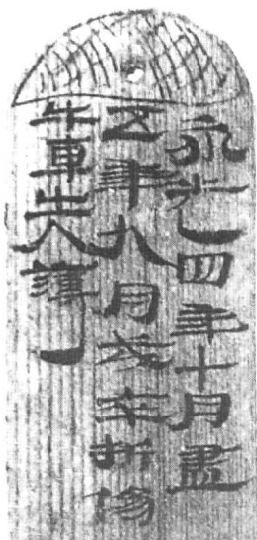 永光四年十月盡
五年九月戍卒折傷
牛車出入簿